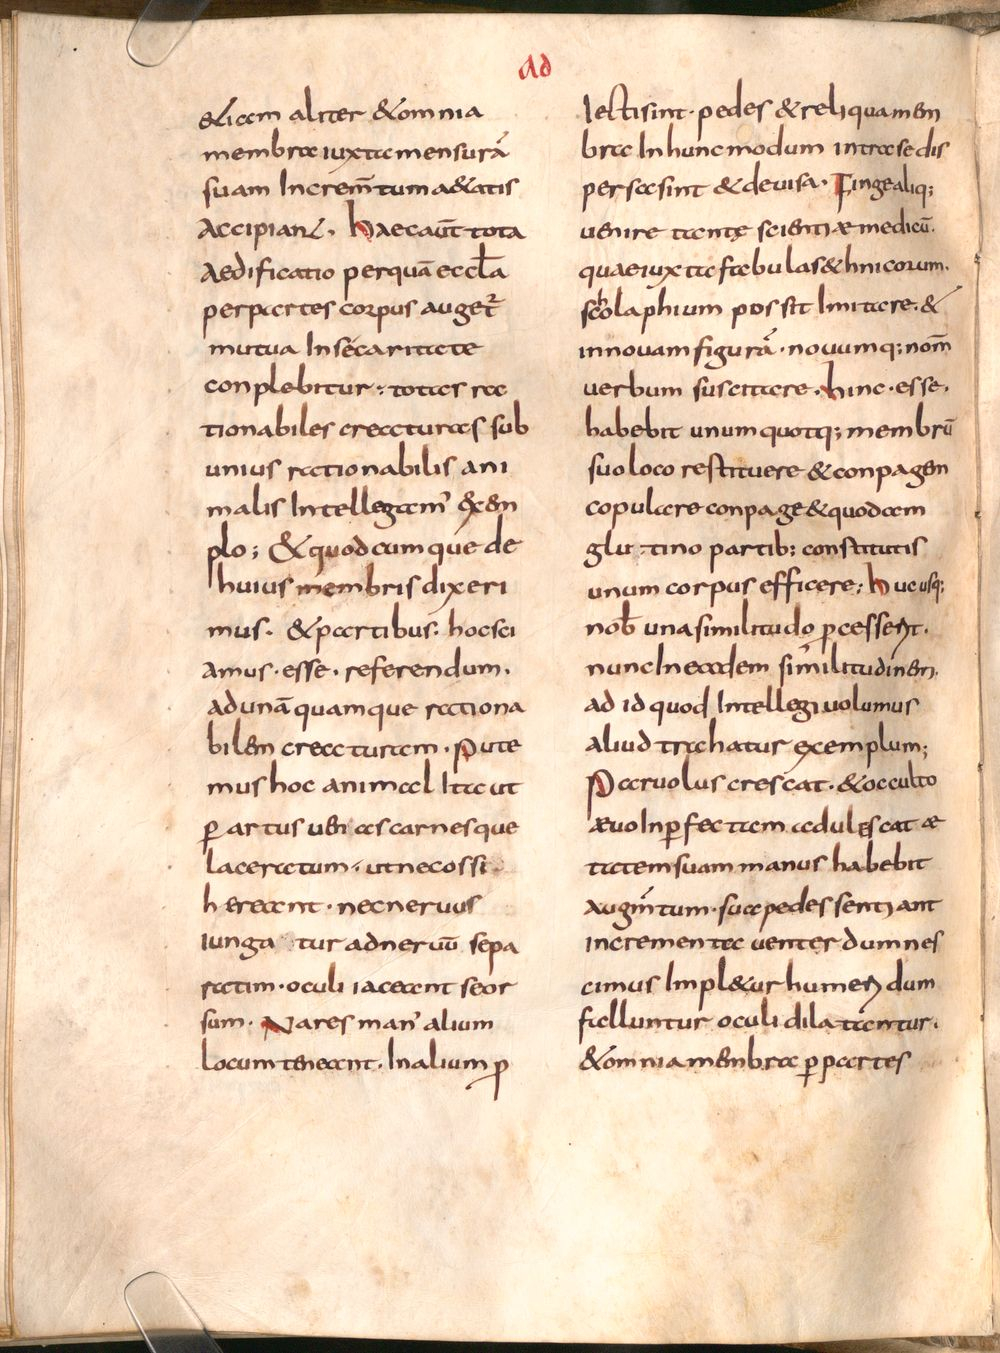 Ad
& licem aliter & omnia
membra iuxta mensurā
suam Increm̄tum a&atis
Accipian&. haec aut̄ tota
Aedificatio per quā eccl̄a
per partes corpus auget̄
mutua In se caritate
conplebitur: totas ra
tionabiles creaturas sub
unius rationabilis ani
malis Intellegam' exem
plo; & quodcumque de
huius membris dixeri
mus. & partibus. hoc sci
amus. esse. referendum.
ad unā quamque rationa
bilem creaturam. Pute
mus hoc animal Ita ut
p̱ artus uenas carnesque
laceratum. ut nec ossi
hereant. nec neruus
iunga tur ad neruū sepa
ratim. oculi iaceant seor
sum. Nares man' alium
Locum teneant. In alium p̱
lecti sint. pedes & reliqua mem
bra In hunc modum intra sedis
persas sint & deuisa. Finge aliq;
uenire tantę scientiæ medicū.
quae iuxta fabulas &hnicorum.
scolaphium possit Imitare. &
in nouam figurā. nouumq; nom̄
uerbum suscitare. hinc. esse.
habebit unum quotq; membrū
suo loco restituere & conpagen
copulare conpage & quodam
glutino partib; constitutis
unum corpus efficere; huc usq;
nob̄ una similitudo p̱cesserit.
nunc In eadem similitudinem.
ad id quod Intellegi uolumus
aliud trahatur exemplum;
Paruolus crescat. & occulto
æuo In p̱fectam adulescat æ
tatem suam manus habebit
augm̄tum. sua pedes sentiant
incrementa uenter dum nes
cimus Impl&ur humeri dum
falluntur oculi dilatantur.
& omnia membra p̱ partes